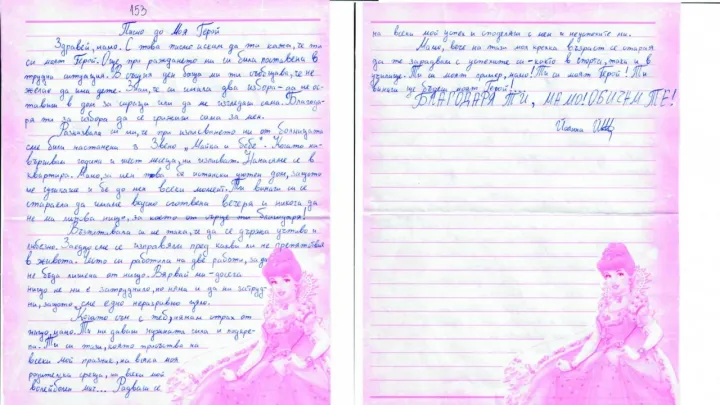 153
Писмо до Моя Герой
Здравей, мамо. С това писмо искам да ти кажа, че ти
си моят Герой. Още при раждането ни си била поставена в
трудна ситуация. В същия ден баща ми ти съобщава, че не
желае да има дете. Знам, че си имала два избора - да ме ос-
тавиш в дом за сираци или да ме изгледаш сама. Благода-
ря ти за избора да се грижиш сама за мен.
Разказвала си ми, че при изписването ни от болницата
сме били настанени в Звено „Майка и бебе". Когато на-
вършвам година и шест месеца, ни изгонват. Нанасяме се в
квартира. Мамо, за мен това бе истински уютен дом, защото
ме гушкаше и бе до мен всеки момент. Ти винаги си се
старала да имаме вкусно сготвена вечеря и никога да
не ми липсва нищо, за което от сърце ти благодаря!
Възпитавала си ме така, че да се държа учтиво и
любезно. Заедно сме се изправяли пред какви ли не препятствия
в живота. Често си работила на две работи, за да
не бъда лишена от нищо. Вярвай ми - досега
нищо не ни е затруднило, но няма и да ни затруд-
ни, защото сме едно неразривно цяло.
Когато съм с теб, нямам страх от
нищо, мамо. Ти ми даваш нужната сила и подкре-
па. Ти си тази, която присъства на
всеки мой празник, на всяка моя
родителска среща, на всеки мой
волейболен мач... Радваш се
на всеки мой успех и споделяш с мен и неуспехите ми.
Мамо, вече на тази моя крехка възраст се старая
да те зарадвам с успехите си - както в спорта, така и в
училище. Ти си моят пример, мамо! Ти си моят Герой! Ти
винаги ще бъдеш моят Герой!
БЛАГОДАРЯ ТИ, МАМО! ОБИЧАМ ТЕ!